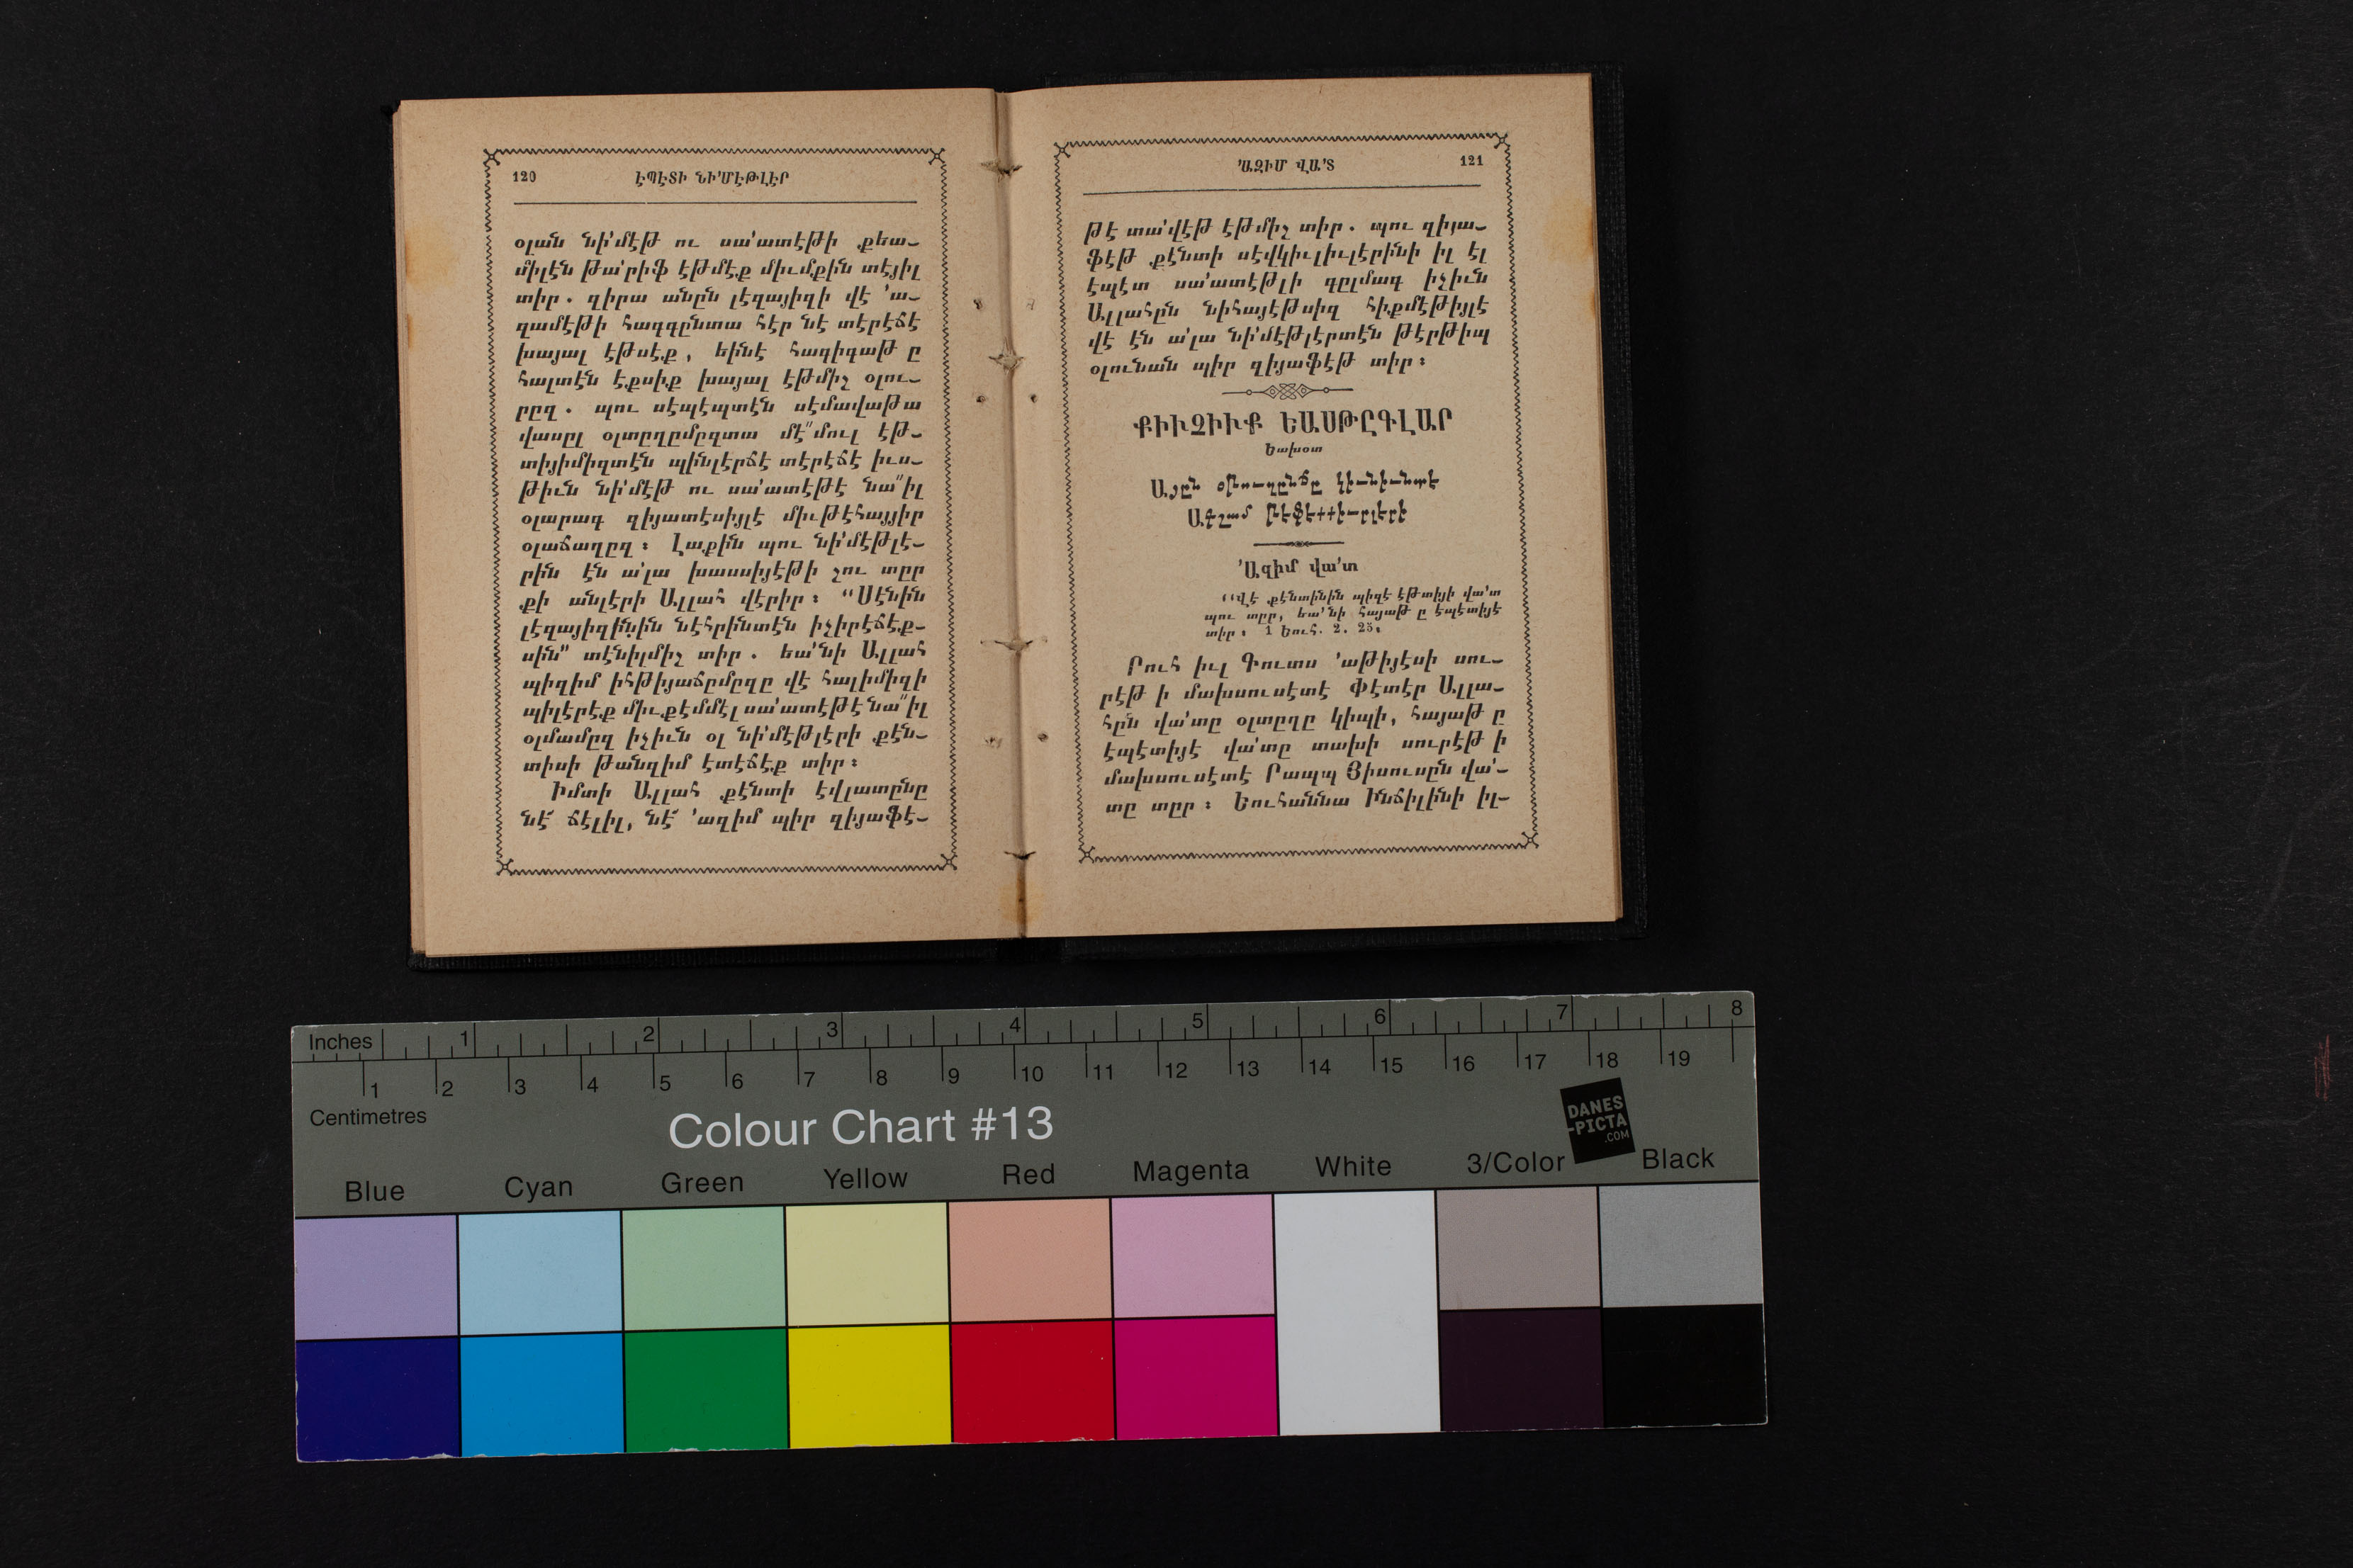 120 ԷՊԷՏԻ ՆԻ՛ՄԷԹԼԷՐ
օլան նի՛մէթ ու սա՛ատէթի քեա-
միլէն թա՛րիֆ էթմէք միւմքին տէյիլ
տիր. զիրա անըն լէզայիզի վէ ՛ա-
զամէթի հագգընտա հէր նէ տէրէճէ
խայալ էթսէք, եինէ հագիգաթ ը
հալտէն էքսիք խայալ էթմիշ օլու-
րըզ. պու սէպէպտէն սէմավաթա
վասըլ օլտըղըմըզտա մէ՛՛մուլ էթ-
տիյիմիզտէն պինլէրճէ տէրէճէ իւս-
թիւն նի՛մէթ ու սա՛ատէթէ նա՛՛իլ
օլարագ զիյատէսիյլէ միւթէհայյիր
օլաճաղըզ։ Լաքին պու նի՛մէթլէ-
րին էն ա՛լա խասսիյէթի շու տըր
քի անլէրի Ալլահ վէրիր։ “Սէնին
լէզայիզինին նէհրինտէն իչիրէճէք-
սին” տէնիլմիշ տիր. եա՛նի Ալլահ
պիզիմ իհթիյաճըմըզը վէ հալիմիզի
պիլէրէք միւքէմմէլ սա՛ատէթէ նա՛՛իլ
օլմամըզ իչիւն օլ նի՛մէթլէրի քէն-
տիսի թանզիմ էտէճէք տիր։
Իմտի Ալլահ քէնտի էվլատընը
նէ՜ ճէլիլ, նէ՜ ՛ազիմ պիր զիյաֆէ-
՛ԱԶԻՄ ՎԱ՛Տ 121
թէ տա՛վէթ էթմիշ տիր. պու զիյա-
ֆէթ քէնտի սէվկիւլիւլէրինի իլ էլ
էպէտ սա՛ատէթլի գըլմագ իչիւն
Ալլահըն նիհայէթսիզ հիքմէթիյլէ
վէ էն ա՛լա նի՛մէթլէրտէն թէրթիպ
օլունան պիր զիյաֆէթ տիր։
ՔԻՒՉԻՒՔ ԵԱՍԹԸԳԼԱՐ
Եախօտ
՛Ազիմ վա՛տ
“Վէ քէնտինին պիզէ էթտիյի վա՛տ
պու տըր, եա՛նի հայաթ ը էպէտիյէ
տիր։ 1 Եուհ. 2. 25։
Րուհ իւլ Գուտս ՛աթիյէսի սու-
րէթ ի մախսուսէտէ Փէտէր Ալլա-
հըն վա՛տը օլտըղը կիպի, հայաթ ը
էպէտիյէ վա՛տը տախի սուրէթ ի
մախսուսէտէ Րապպ Յիսուսըն վա՛-
տը տըր։ Եուհաննա Ինճիլինի իլ-
Inches 1 2 3 4 5 6 7 8
1 2 3 4 5 6 7 8 9 10 11 12 13 14 15 16 17 18 19
Centimetres
Colour Chart #13
DANES
-PICTA
.COM
Blue Cyan Green Yellow Red Magenta White 3/Color Black